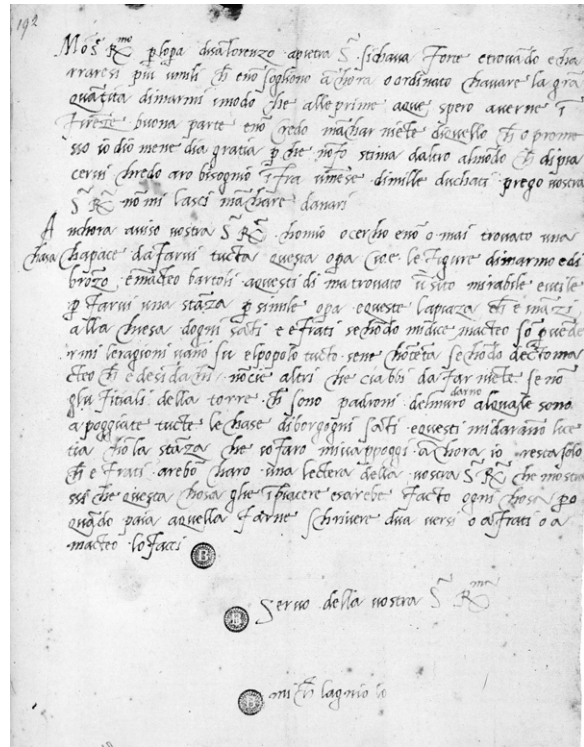 192
Mo͂s. R.mo p lopa disa lorenzo apietra S. si chava forte e trovādo e cha
rraresi più umili ch̄ enō sogliono āchora o ordinato chavare la grā
quātita di marmi imodo che alle prime aque spero averne ī
Firēze buona parte e nō credo māchar niete di quello ch̄ o prome
sso io dio mene dia gratia p che nō fo stima daltro almōdo ch̄ di pia
cervi chredo aro bisognio īfra umese di mille duchati prego vostra
S. R. nō mi lasci māchare danari
Anchora aviso vostra S. R. chomio o cercho e nō o mai trovato una
chasa chapace da farvi tucta questa opa cioe le figure di marmo e di
brōzo e macteo bartoli a questi di ma trovato ū sito mirabile e utile
p farvi una stāza p simile opa e queste la piaza ch̄ e inā zi
alla chiesa dogni sāti e e frati sechōdo mi dice macteo so p vede
rmi le ragioni vano su el popolo tucto sene chōteta sechōdo decto ma
cteo ch̄ e desidachi nōcie altri che ci abbi da far niete se nō
gli ufitiali della torre ch̄ sono padroni del muro darno al quale sono
apoggiate tucte le chase di borgogni sāti e questi mi darāno lice
tia cho la stāza che so faro mivappoggi āchora io resta solo
ch̄ e frati arebō charo una lectera della vostra S. R. che mostra
ssi che questa chosa gli e ī piacere e sarebe facto ogni chosa p o
quādo paia a quella farne schrivere dua versi o a frati o a
macteo lo facci
Servo della vostra S. R.ma
Michelagnio lo